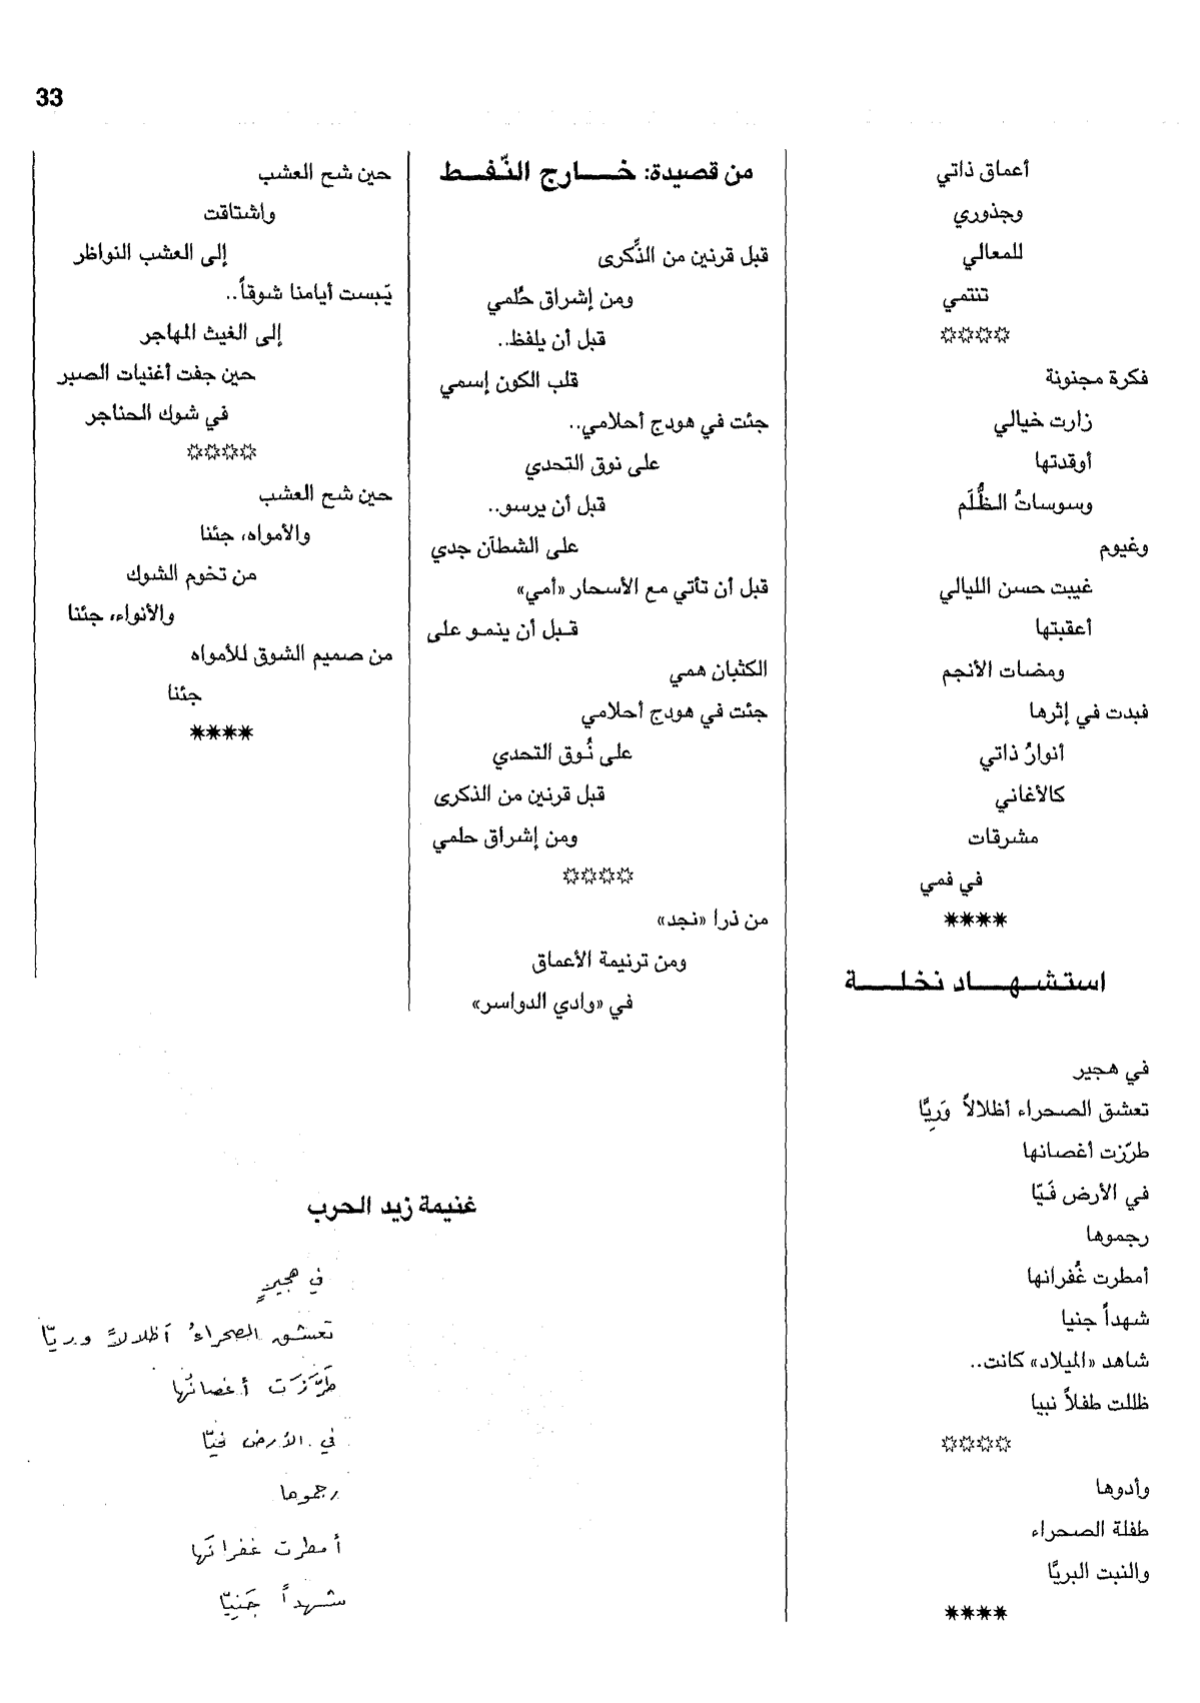 33
أعماق ذاتي
وجذوري
للمعالي
تنتمي
☼☼☼☼
فكرة مجنونة
زارت خيالي
أوقدتها
وسوساتُ الظُّلَم
وغيوم
غيبت حسن الليالي
أعقبتها
ومضات الأنجم
فبدت في إثرها
أنوارُ ذاتي
كالأغاني
مشرقات
في فمي
****
استشهاد نخلة
في هجير
تعشق الصحراء أظلالاً وَرِيَّا
طرّزت أغصانها
في الأرض فَيّا
رجموها
أمطرت غُفرانها
شهداً جنيا
شاهد «الميلاد» كانت..
ظللت طفلاً نبيا
☼☼☼☼
وأدوها
طفلة الصحراء
والنبت البريَّا
****
من قصيدة: خارج النّفط
قبل قرنين من الذِّكرى
ومن إشراق حُلمي
قبل أن يلفظ..
قلب الكون إسمي
جئت في هودج أحلامي..
على نوق التحدي
قبل أن يرسو..
على الشطآن جدي
قبل أن تأتي مع الأسحار «أمي»
قبل أن ينمو على
الكثبان همي
جئت في هودج أحلامي
على نُوق التحدي
قبل قرنين من الذكرى
ومن إشراق حلمي
☼☼☼☼
من ذرا «نجد»
ومن ترنيمة الأعماق
في «وادي الدواسر»
حين شح العشب
واشتاقت
إلى العشب النواظر
يَبست أيامنا شوقاً..
إلى الغيث المهاجر
حين جفت أغنيات الصبر
في شوك الحناجر
☼☼☼☼
حين شح العشب
والأمواه، جئنا
من تخوم الشوك
والأنواء، جئنا
من صميم الشوق للأمواه
جئنا
****
غنيمة زيد الحرب
في هجيرٍ
تعشق الصحراءُ أظلالاً وريّا
طَرَّزَت أغصانُها
في الأرض فيّا
رجموها
أمطرت غفرانَها
شهداً جَنِيّا